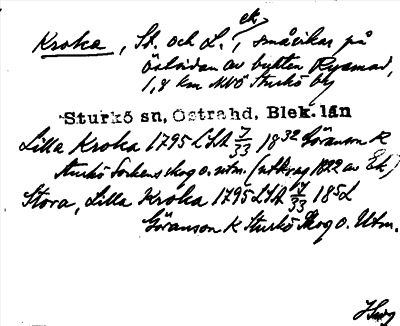 Kroka, St. och L., ek., småvikar på
östsidan av bukten Rysmad,
1,8 km NNÖ Sturkö by
Sturkö sn, Östrahd, Blek. län
Lilla Kroka 1795 LSA 7/33 1832 Göranson K
Sturkö Sockens skog o. utm. (utdrag 1822 av Ek.)
Stora, Lilla Kroka 1795 LSA 17/33 185
Göranson K Sturkö Skog o. Utm.